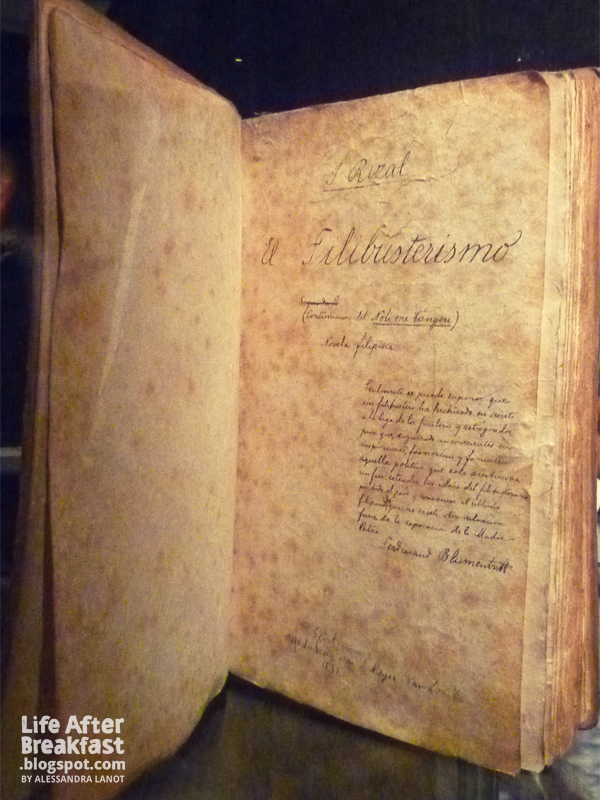 J Rizal
El Filibusterismo
(Continuacion del Noli me tángere)
Novela filipina
Facilmente se puede suponer que
un filibustero ha hechizado en secreto
a la liga de los fraileros y retrogrados
para que, siguiendo inconscientes sus
inspiraciones, favorezcan y fomenten
aquella politica que solo ambiciona
un fin: estender las ideas del filibusterismo
por todo el pais y convencer al ultimo
filipino de que no existe otra salvacion
fuera de la separacion de la Madre-
Patria
Ferdinand Blumentritt
Gent
Meyer Van Loo
1891
Life After
Breakfast
.blogspot.com
BY ALESSANDRA LANOT